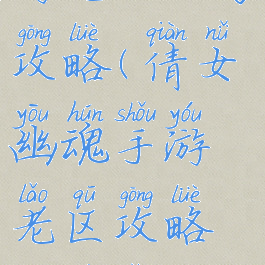 gōng lüè qiàn nǚ
攻略(倩女
yōu hún shǒu yóu
幽魂手游
lǎo qū gōng lüè
老区攻略